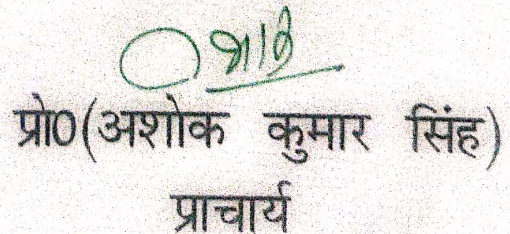 प्रो0(अशोक कुमार सिंह)
प्राचार्य